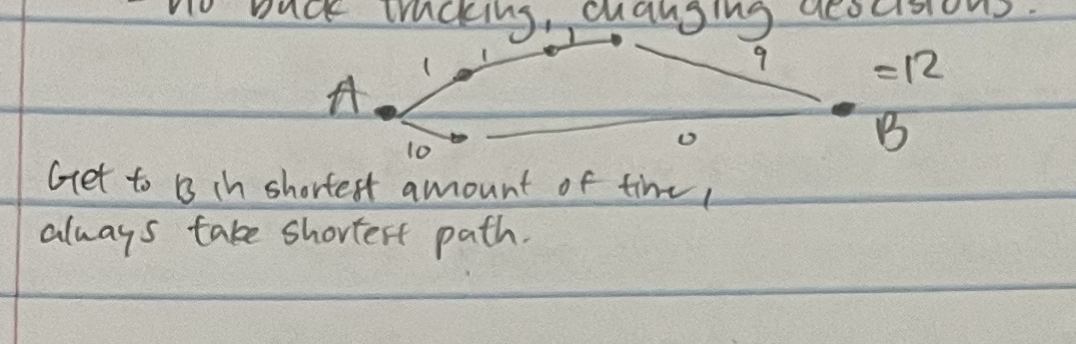 - no back tracking, changing descisions.
1 1 1 9
A =12
10 0 B
Get to B in shortest amount of time,
always take shortest path.